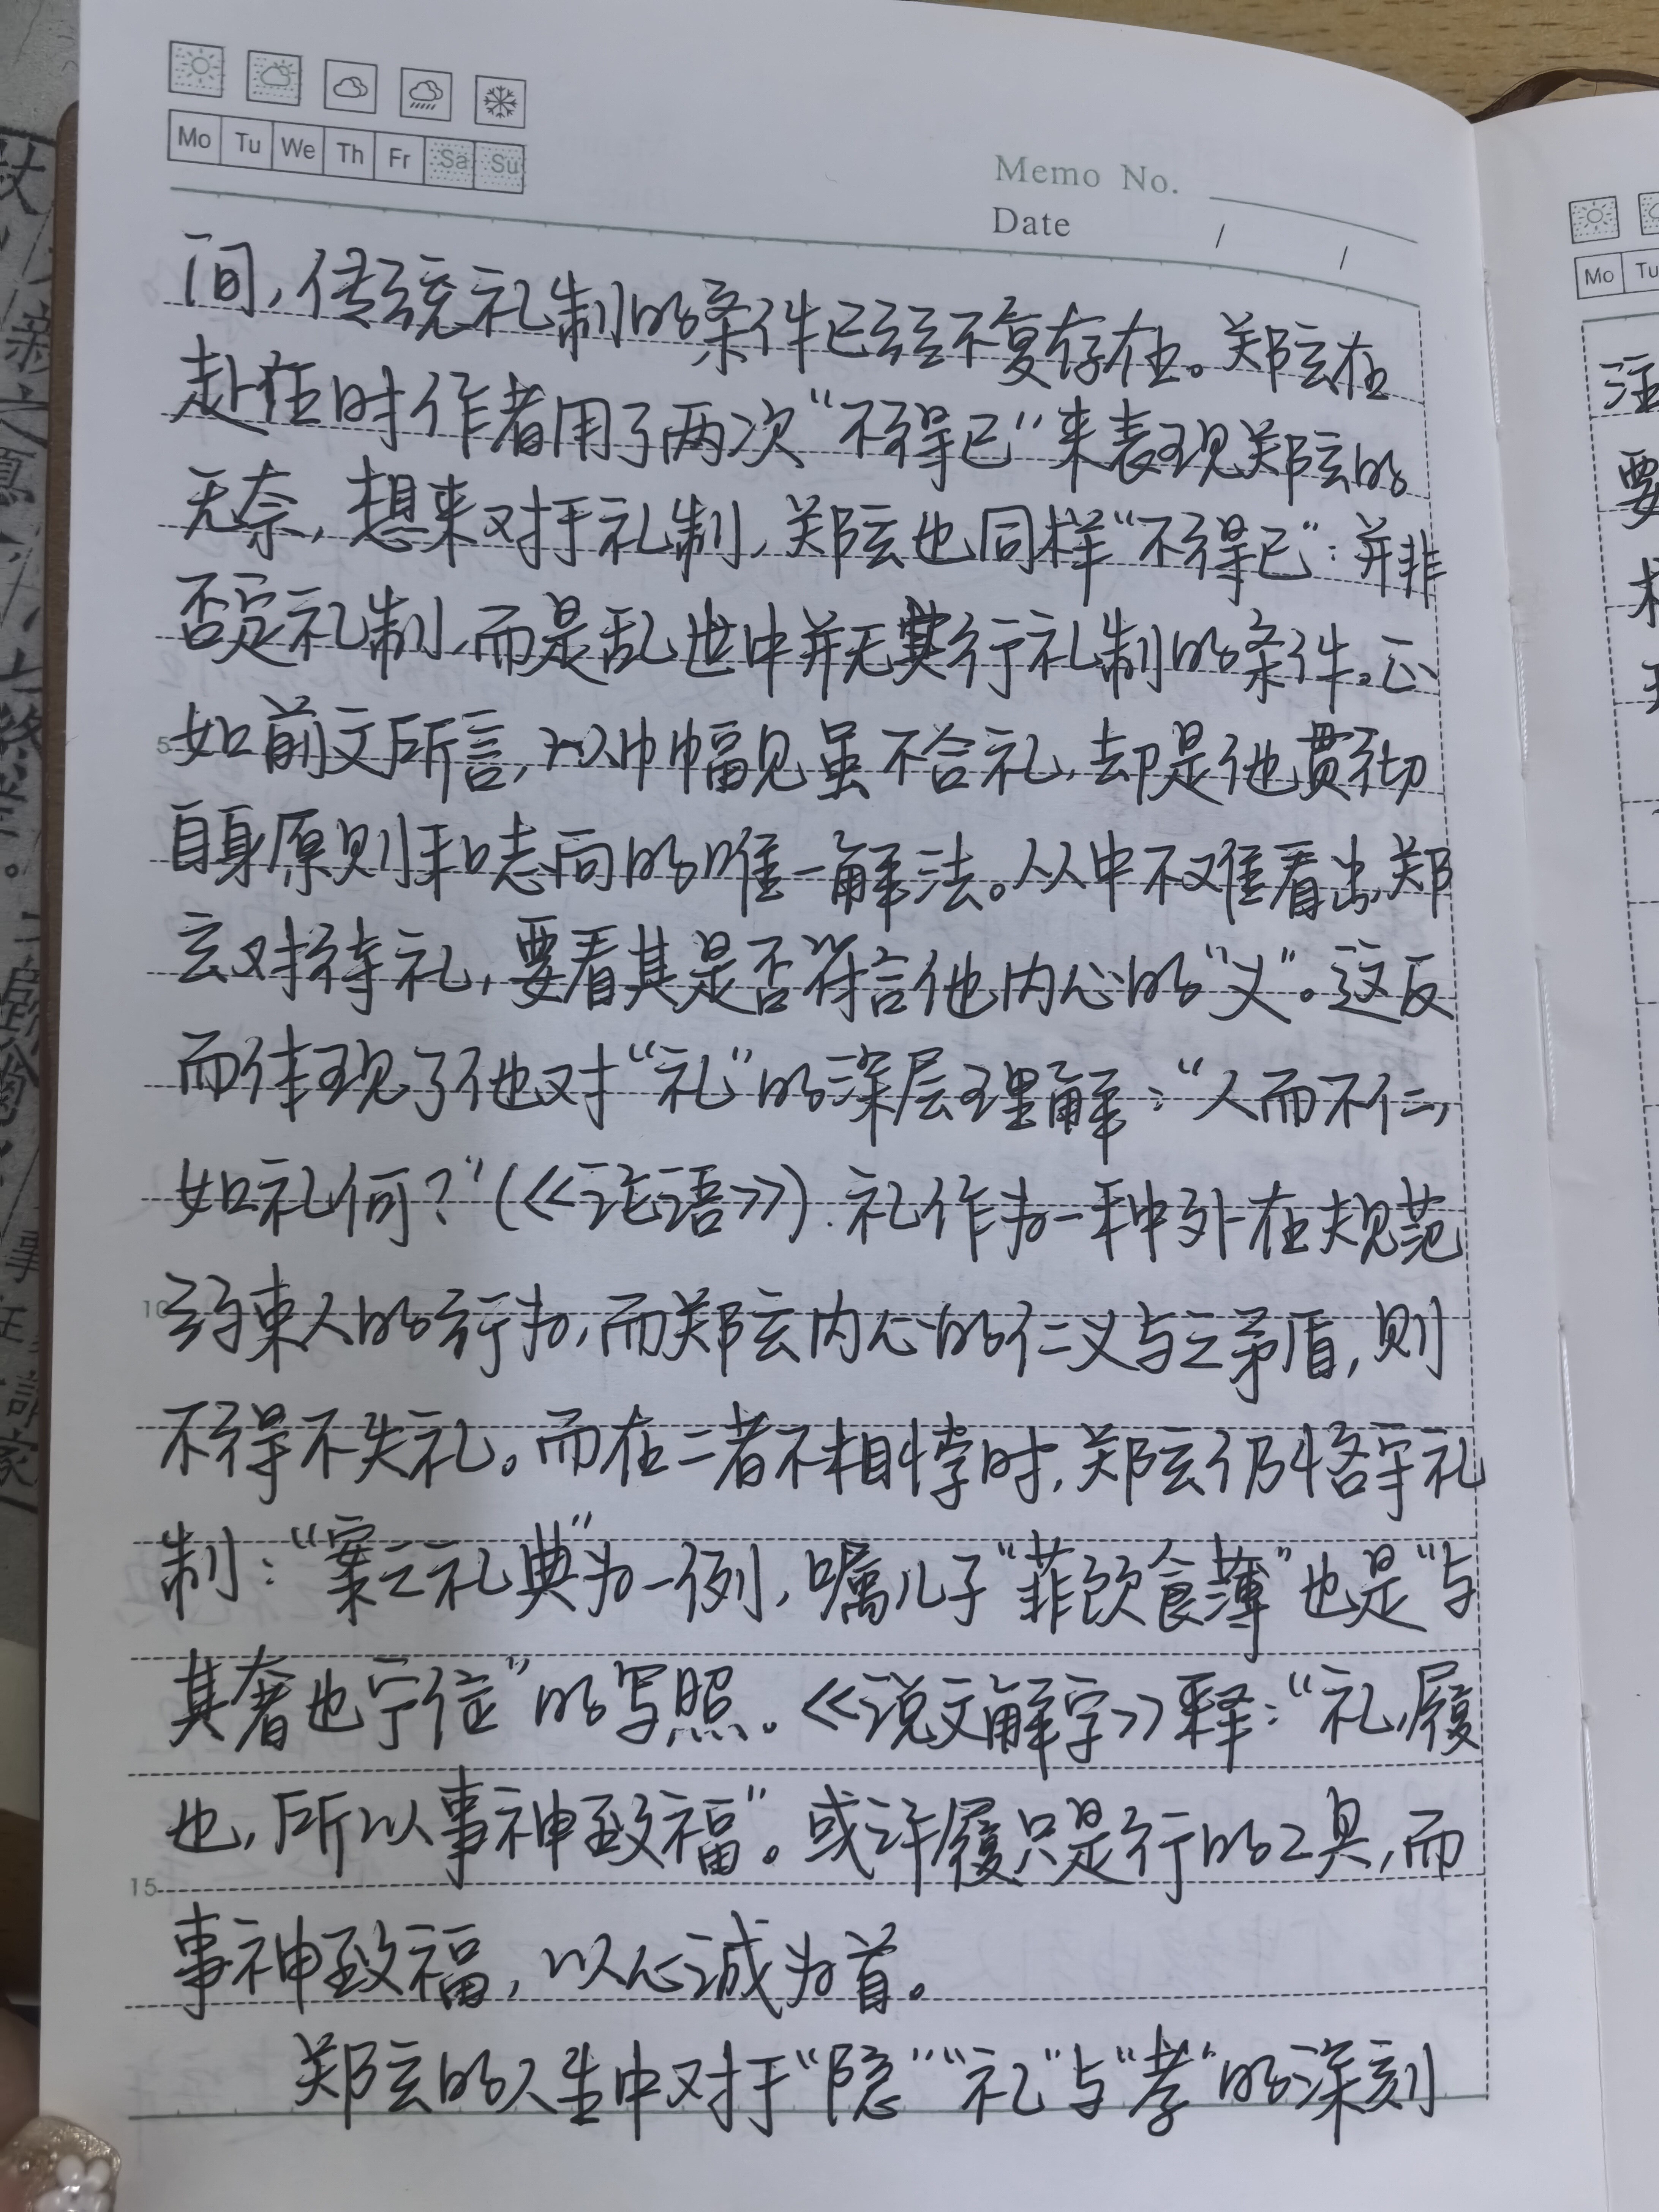 Mo Tu We Th Fr Sa Su
Memo No.
Date / /
间，传统礼制的条件已经不复存在。郑玄在
赴任时作者用了两次“不得已”来表现郑玄的
无奈，想来对于礼制，郑玄也同样“不得已”：并非
否定礼制，而是乱世中并无其行礼制的条件。正
如前文所言，以巾幅见虽不合礼，却是他贯彻
5
自身原则和志向的唯一解法。从中不难看出，郑
玄对待礼，要看其是否符合他内心的“义”。这反
而体现了他对“礼”的深层理解：“人而不仁，
如礼何？”（《论语》）。礼作为一种外在规范
约束人的行为，而郑玄内心的仁义与之矛盾，则
10
不得不失礼。而在二者不相悖时，郑玄仍恪守礼
制：“案之礼典”为一例，嘱儿子“菲饮食薄”也是“与
其奢也宁俭”的写照。《说文解字》释：“礼，履
也，所以事神致福”。或许履只是行的工具，而
15
事神致福，以心诚为首。
郑玄的人生中对于“隐”“礼”与“孝”的深刻
Mo Tu
注
要